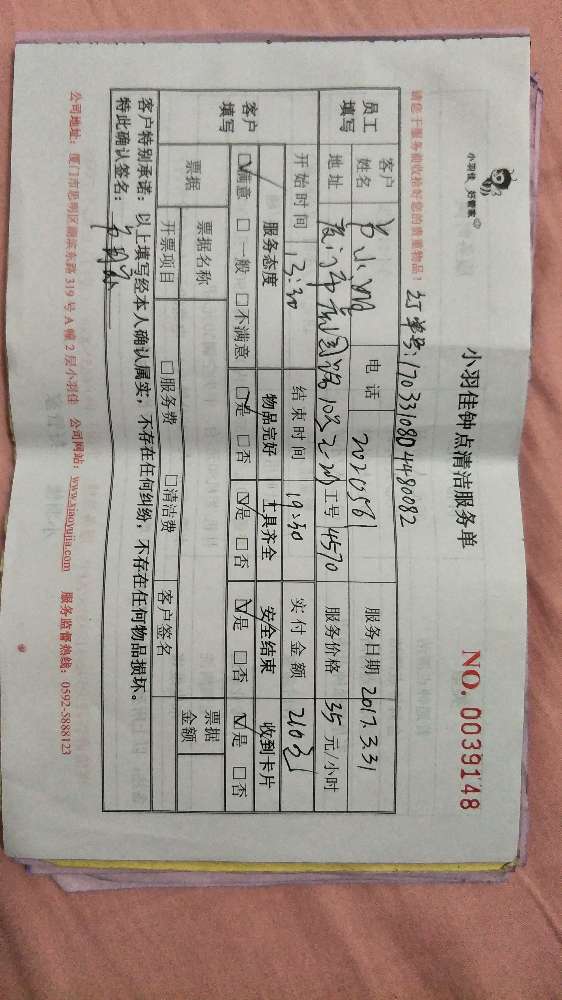 小羽佳 好管家
小羽佳钟点清洁服务单
NO. 0039148
请您于服务前收拾好您的贵重物品!
订单号:17033108044480082
员工填写
客户姓名 电话 2020561 服务日期 2017.3.31
地址 工号 4570 服务价格 35 元/小时
客户填写
开始时间 13:30 结束时间 19:30 实付金额 210元
服务态度 物品完好 工具齐全 安全结束 收到卡片
☑满意 □一般 □不满意 ☑是 □否 ☑是 □否 ☑是 □否 ☑是 □否
票据 票据名称 客户签名 票据金额
开票项目 □服务费 □清洁费
客户特别承诺:以上填写经本人确认属实,不存在任何纠纷,不存在任何物品损坏。
特此确认签名:
公司地址:厦门市思明区湖滨东路 319 号 A 幢 2 层小羽佳 公司网站:www.xiaoyujia.com 服务监督热线:0592-5888123